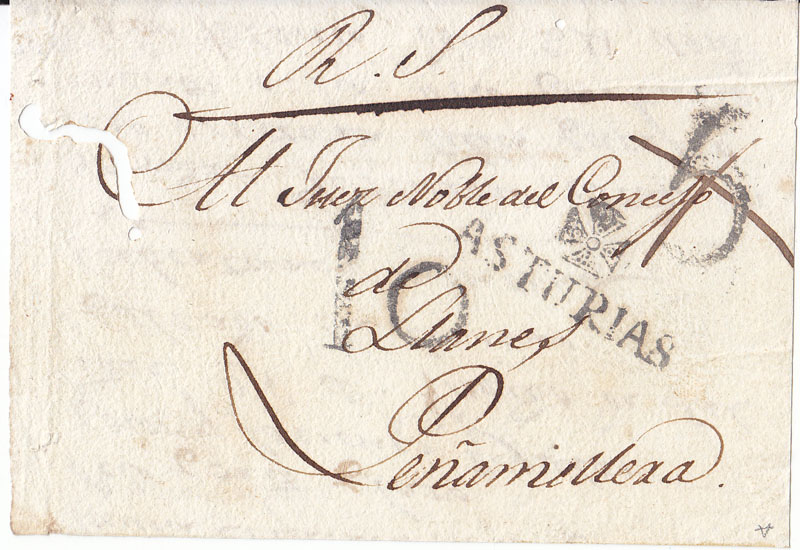 R. S.
Al Juez Noble del Concejo
5
ASTURIAS
de
10
Llanes
Peñamellera.